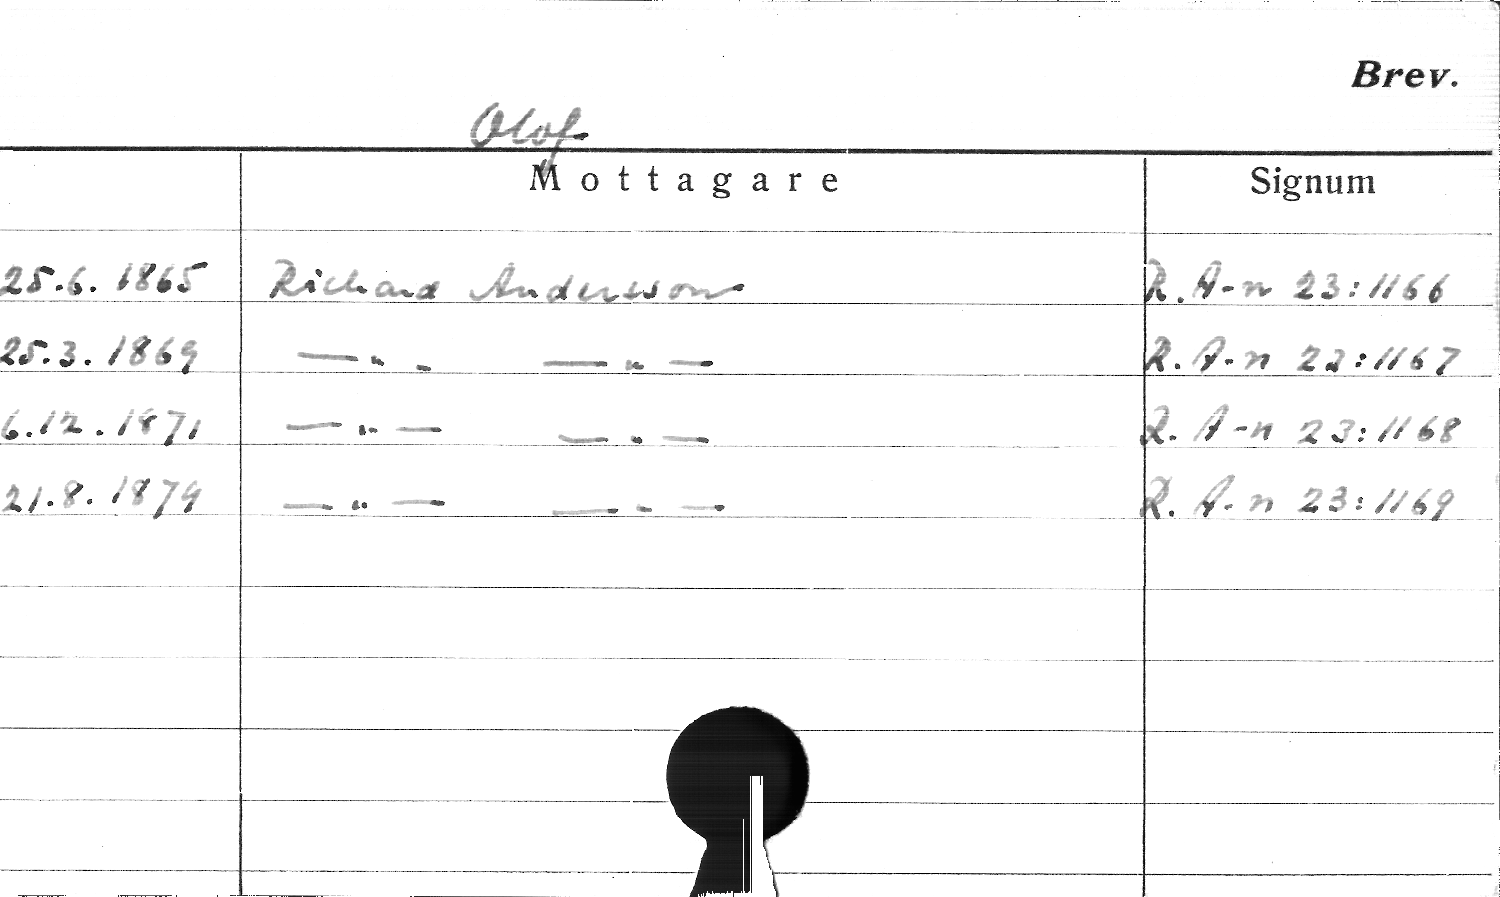 Brev.
Olof
Mottagare Signum
25.6.1865 Richard Andersson R. A-n 23:1166
25.3.1869 —„- —„— R. A-n 22:1167
6.12.1871 —„— —„— R. A-n 23:1168
21.8.1879 —„— —„— R. A-n 23:1169